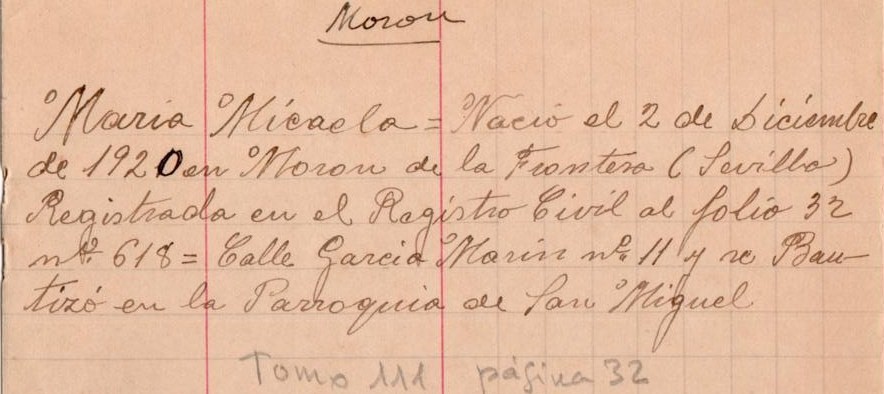 Moron
Maria Micaela = Nació el 2 de Diciembre
de 1920 en Moron de la Frontera (Sevilla)
Registrada en el Registro Civil al folio 32
nº 618 = Calle Garcia Marin nº 11 y se Bau-
tizó en la Parroquia de San Miguel
Tomo 111 página 32